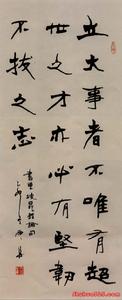 立大事者不唯有超
世之才亦必有堅韌
不拔之志